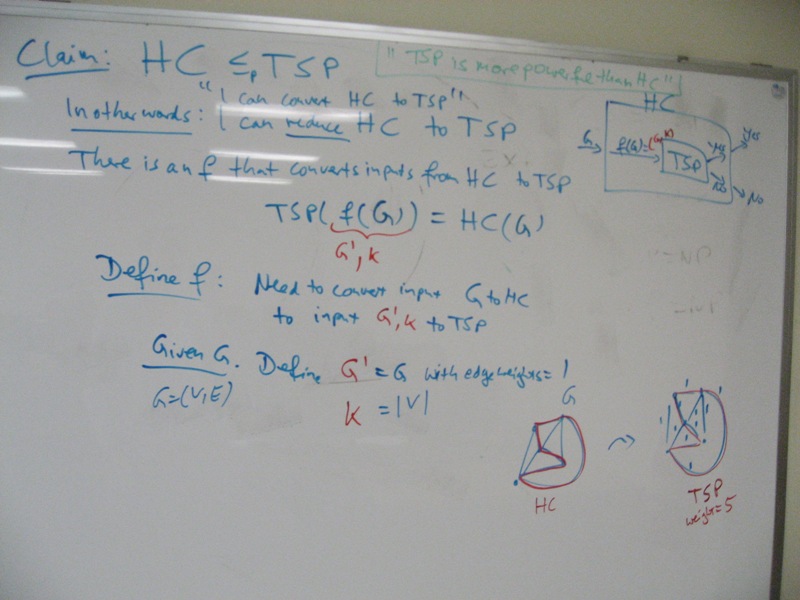 Claim: HC ≤p TSP
"TSP is more powerful than HC"
"I can convert HC to TSP"
In other words: I can reduce HC to TSP
There is an f that converts inputs from HC to TSP
HC
G f(G)=(G',k) TSP yes yes
no No
TSP(f(G)) = HC(G)
G', k
Define f: Need to convert input G to HC
to input G', k to TSP
Given G. Define G' = G with edge weights = 1
G=(V,E)
k = |V|
G
HC
TSP
weight=5